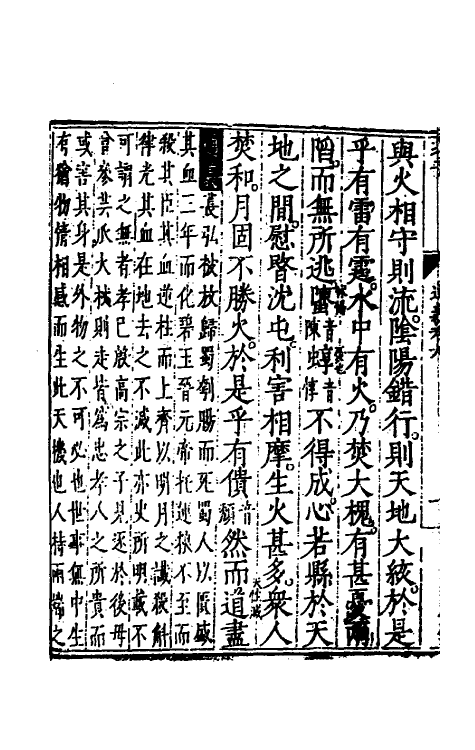 與火相守則流陰陽錯行則天地大絯於是
乎有雷有霆水中有火乃焚大槐有甚憂兩
陷而無所逃螴音陳蜳音惇不得成心若縣於天
地之間慰暋沈屯利害相摩生火甚多衆人
焚和月固不勝火於是乎有僓音頽然而道盡
萇弘被放歸蜀刳腸而死蜀人以匱盛
其血三年而化碧玉晉元帝托運粮不至而
殺其臣其血逆柱而上齊以明月之讖殺斛
律光其血在地去之不滅此亦史所明載不
可謂之無者孝已殷高宗之子見逐於後母
曾參芸瓜大杖則走皆為忠孝人之所貴而
或害其身是外物之不可必也世事無中生
有皆物情相感而生此天機也人持兩端之